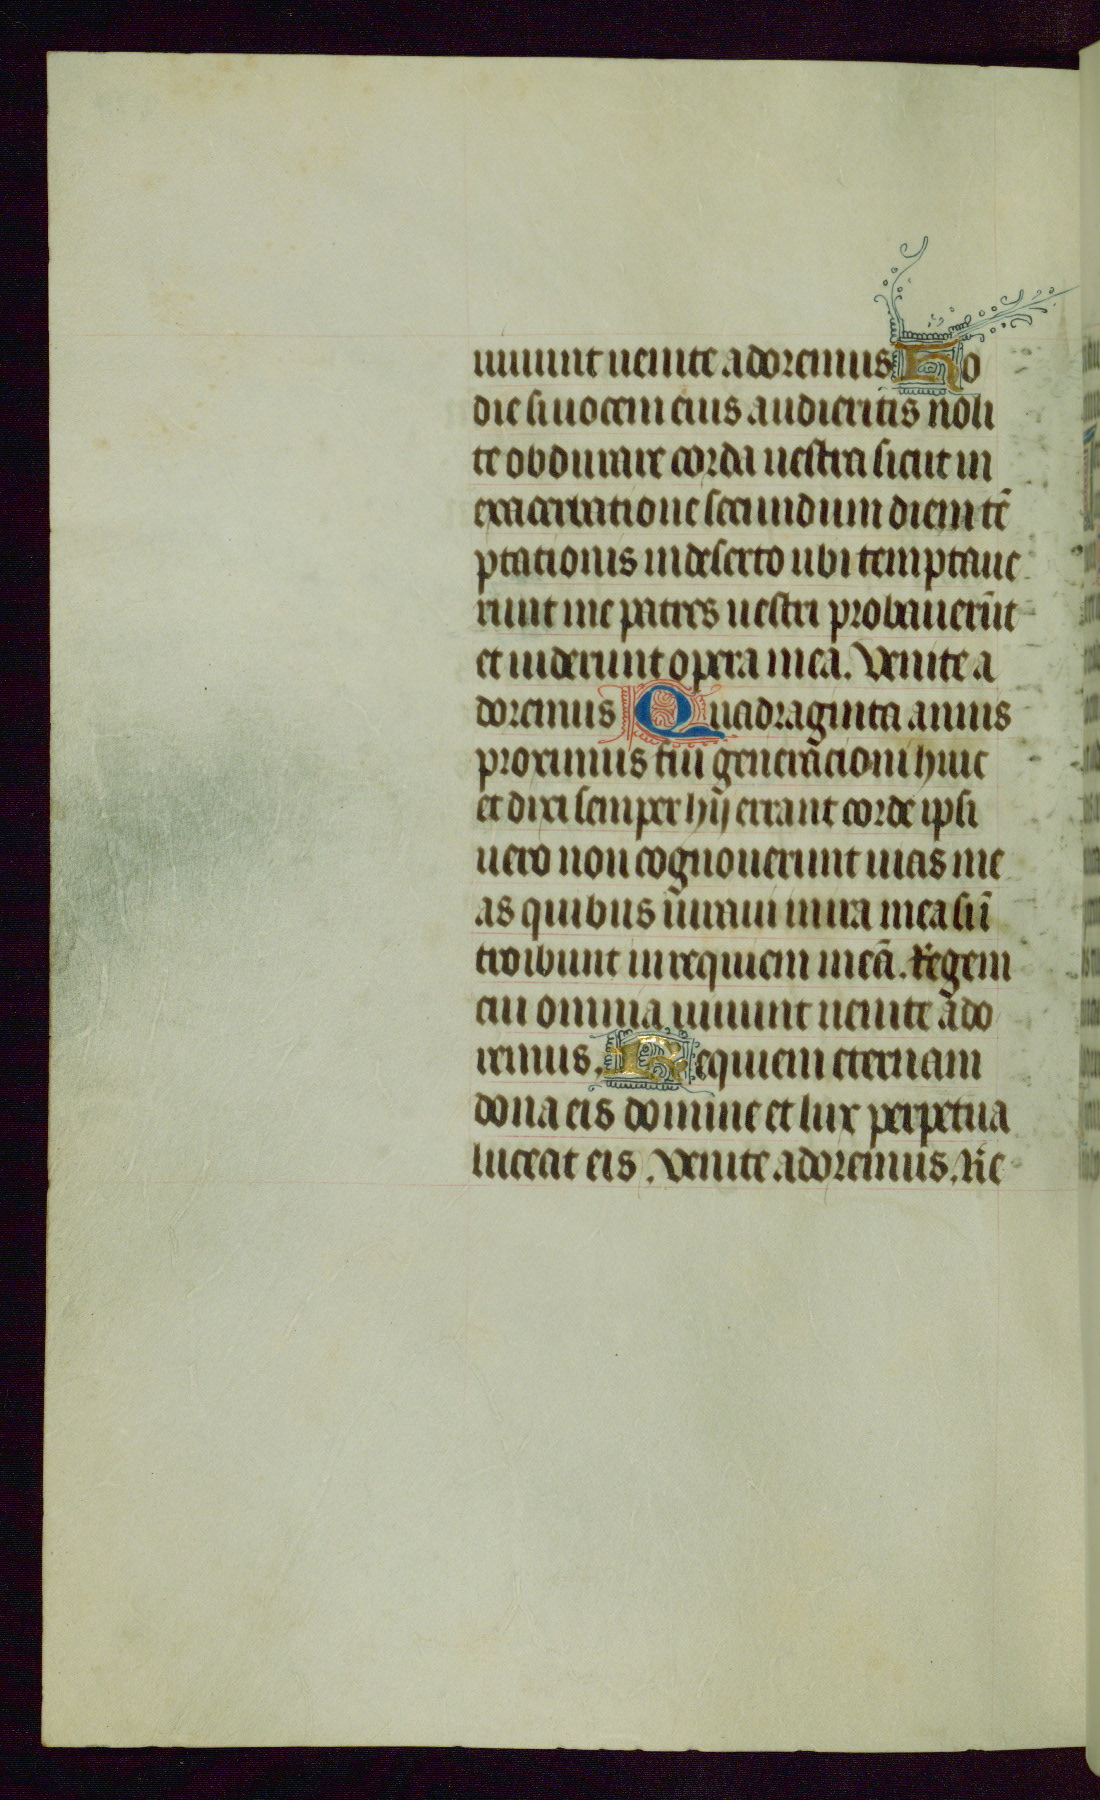 uiuunt uenite adoremus Ho
die si uocem eius audieritis noli
te obdurare corda uestra sicut in
exacerbatione secundum diem tẽ
ptationis in deserto ubi temptaue
runt me patres uestri probauerũt
et uiderunt opera mea. Venite a
doremus Quadraginta annis
proximus fui generacioni huic
et dixi semper hij errant corde ipsi
uero non cognouerunt uias me
as quibus iuraui in ira mea si ĩ
troibunt in requiem meã. Regem
cui omnia uiuunt uenite ado
remus. Requiem eternam
dona eis domine et lux perpetua
luceat eis. Venite adoremus. Re